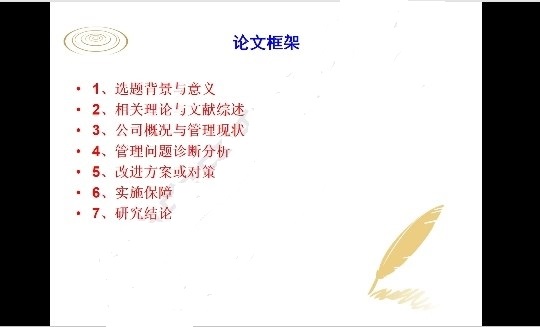 论文框架
• 1、选题背景与意义
• 2、相关理论与文献综述
• 3、公司概况与管理现状
• 4、管理问题诊断分析
• 5、改进方案或对策
• 6、实施保障
• 7、研究结论